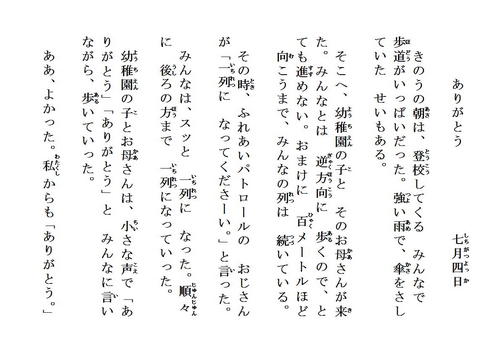 ありがとう　　　七月四日
きのうの朝は、登校してくる　みんなで
歩道がいっぱいだった。強い雨で、傘をさし
ていた　せいもある。
そこへ、幼稚園の子と　そのお母さんが来
た。みんなとは　逆方向に　歩くので、と
ても進めない。おまけに　百メートルほど
向こうまで、みんなの列は　続いている。
その時、ふれあいパトロールの　おじさん
が「一列に　なってくださーい。」と言った。
みんなは、スッと　一列に　なった。順々
に　後ろの方まで　一列になっていった。
幼稚園の子とお母さんは、小さな声で「あ
りがとう」「ありがとう」と　みんなに言い
ながら、歩いていった。
ああ、よかった。私からも「ありがとう。」